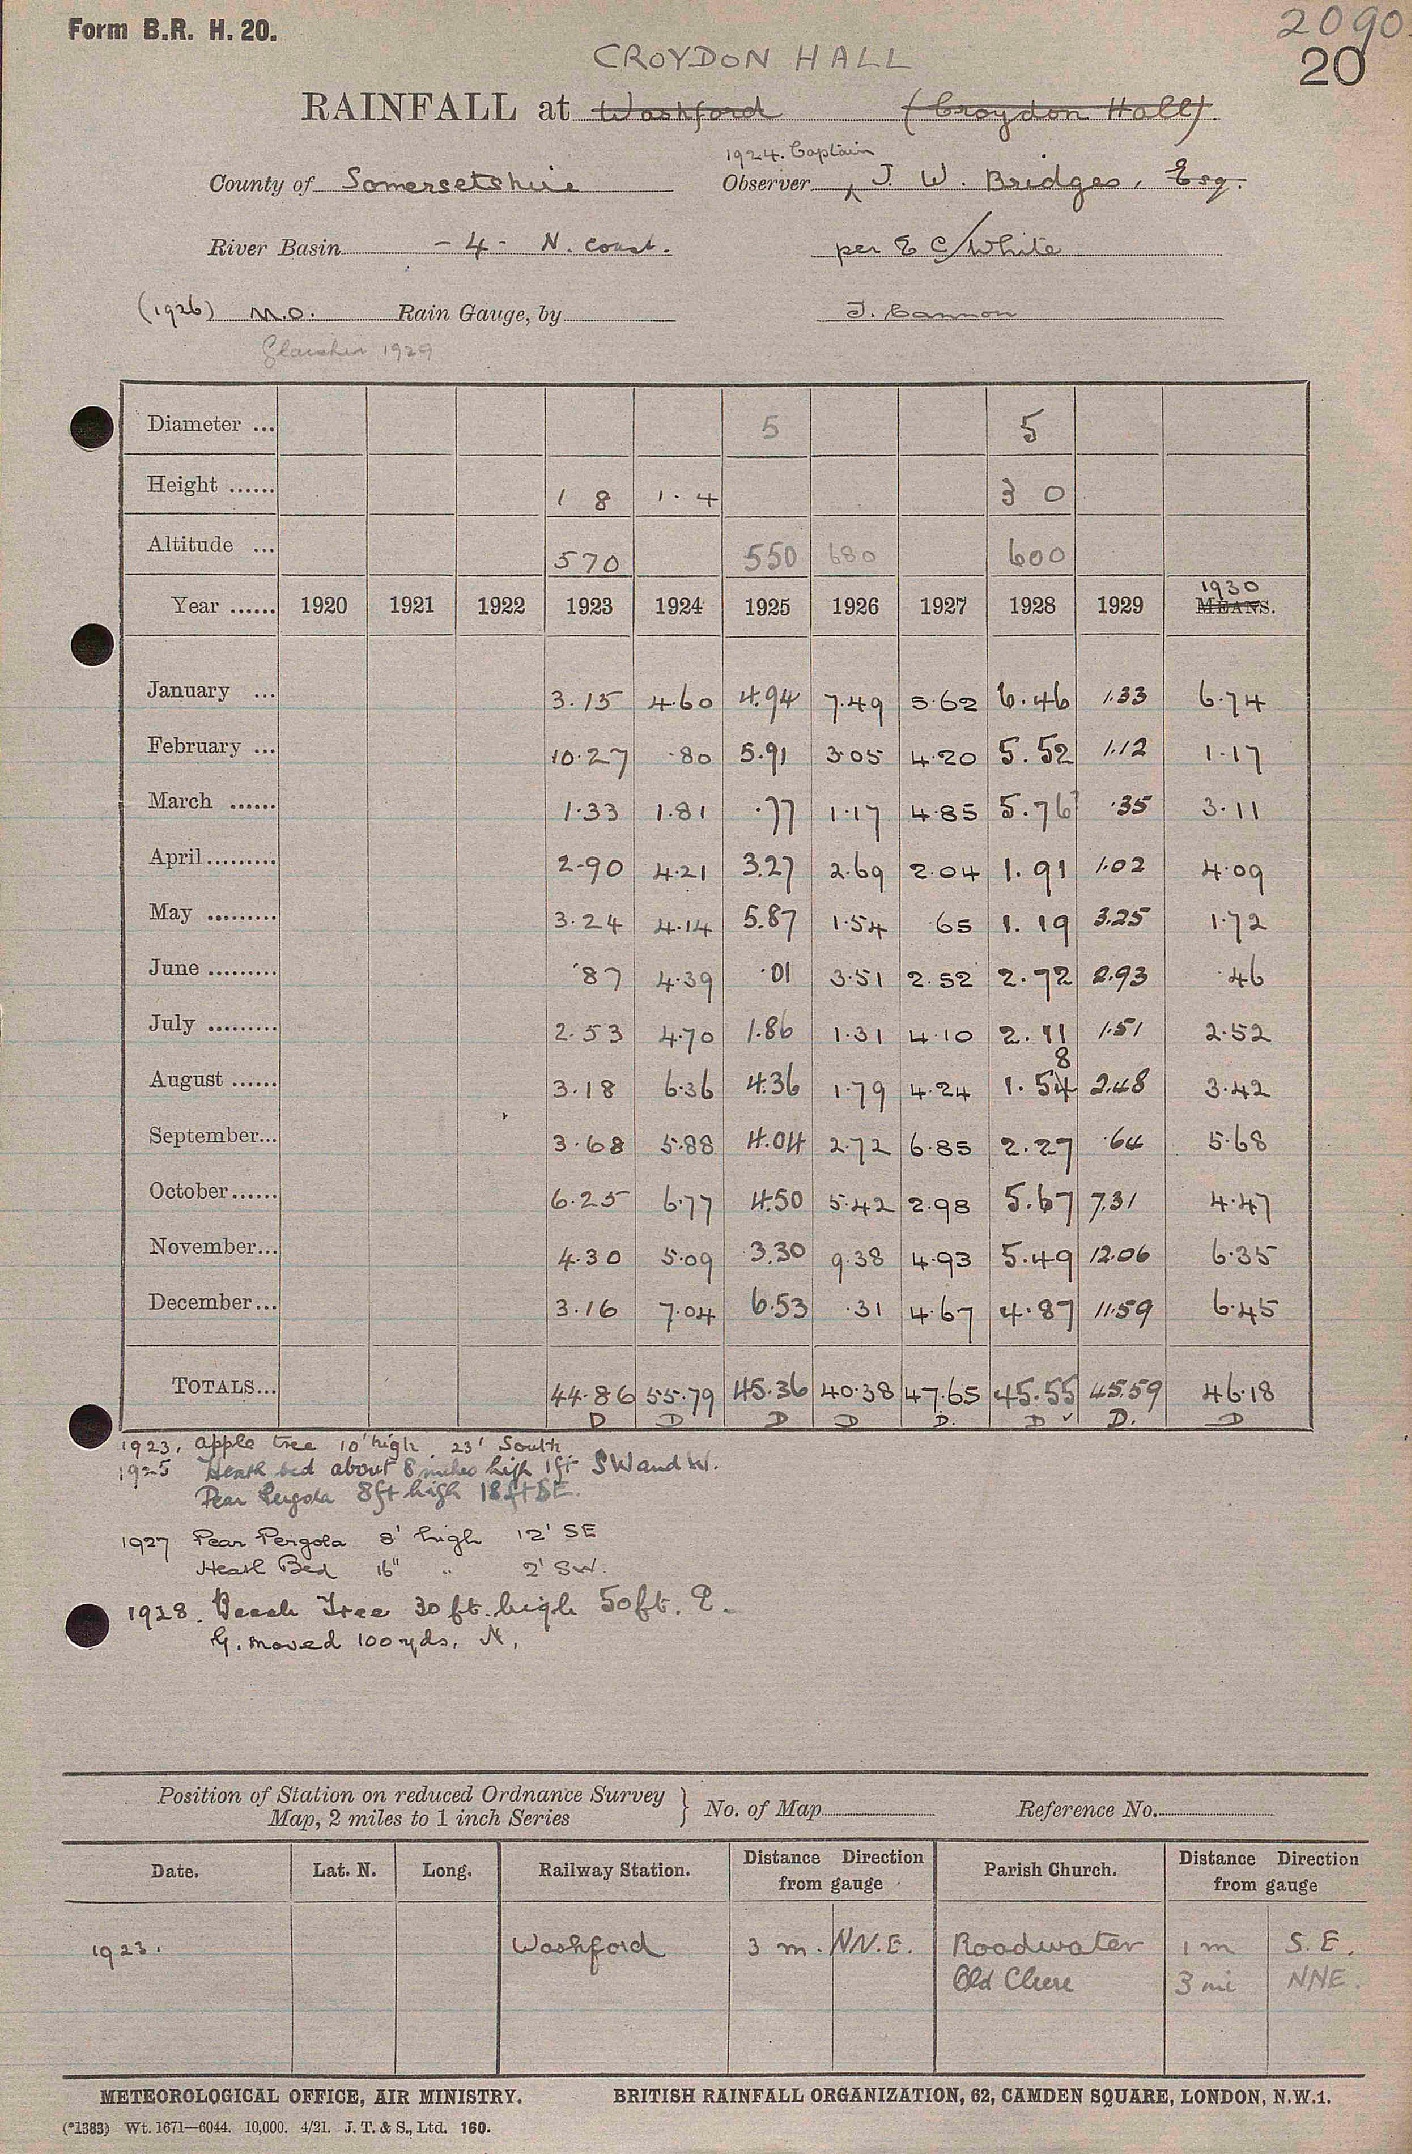 Form B.R. H. 20.
2090
20
CROYDON HALL
RAINFALL at Washford (Croydon Hall)
1924. Captain
County of Somersetshire Observer J. W. Bridges, Esq.
River Basin - 4 - N. Coast. per E C White
(1926) M.O. Rain Gauge, by J. Cannon
Glaisher 1929
Diameter ... 5 5
Height ...... 1 8 1. 4 3 0
Altitude ... 570 550 680 600
1930
Year ...... 1920 1921 1922 1923 1924 1925 1926 1927 1928 1929 MEANS.
January ... 3.15 4.60 4.94 7.49 5.62 6.46 1.33 6.74
February ... 10.27 .80 5.91 3.05 4.20 5.52 1.12 1.17
March ...... 1.33 1.81 .77 1.17 4.85 5.76? .35 3.11
April ......... 2.90 4.21 3.27 2.69 2.04 1.91 1.02 4.09
May ......... 3.24 4.14 5.87 1.54 .65 1.19 3.25 1.72
June ......... .87 4.39 .01 3.51 2.52 2.72 2.93 .46
July ......... 2.53 4.70 1.86 1.31 4.10 2.11 1.51 2.52
8
August ...... 3.18 6.36 4.36 1.79 4.24 1.54 2.48 3.42
September... 3.68 5.88 4.04 2.72 6.85 2.27 .64 5.68
October...... 6.25 6.77 4.50 5.42 2.98 5.67 7.31 4.47
November... 4.30 5.09 3.30 9.38 4.93 5.49 12.06 6.35
December... 3.16 7.04 6.53 .31 4.67 4.87 11.59 6.45
TOTALS... 44.86 55.79 45.36 40.38 47.65 45.55 45.59 46.18
D D D D D. D ✓ D. D
1923. apple tree 10' high 23' South
1925 Heath bed about 8 inches high 1ft SW and W.
Pear Pergola 8ft high 18ft SE.
1927 Pear Pergola 8' high 12' SE
Heath Bed 16" " 2' SW.
1928. Beech Tree 30 ft. high 50ft. E.
G. moved 100 yds. N.
Position of Station on reduced Ordnance Survey
Map, 2 miles to 1 inch Series } No. of Map Reference No.
Date. Lat. N. Long. Railway Station. Distance Direction from gauge Parish Church. Distance Direction from gauge
1923. Washford 3 m. NN.E. Roadwater 1 m S. E.
Old Cleeve 3 mi NNE.
METEOROLOGICAL OFFICE, AIR MINISTRY. BRITISH RAINFALL ORGANIZATION, 62, CAMDEN SQUARE, LONDON, N.W.1.
(*1383) Wt. 1671—6044. 10,000. 4/21. J. T. & S., Ltd. 160.